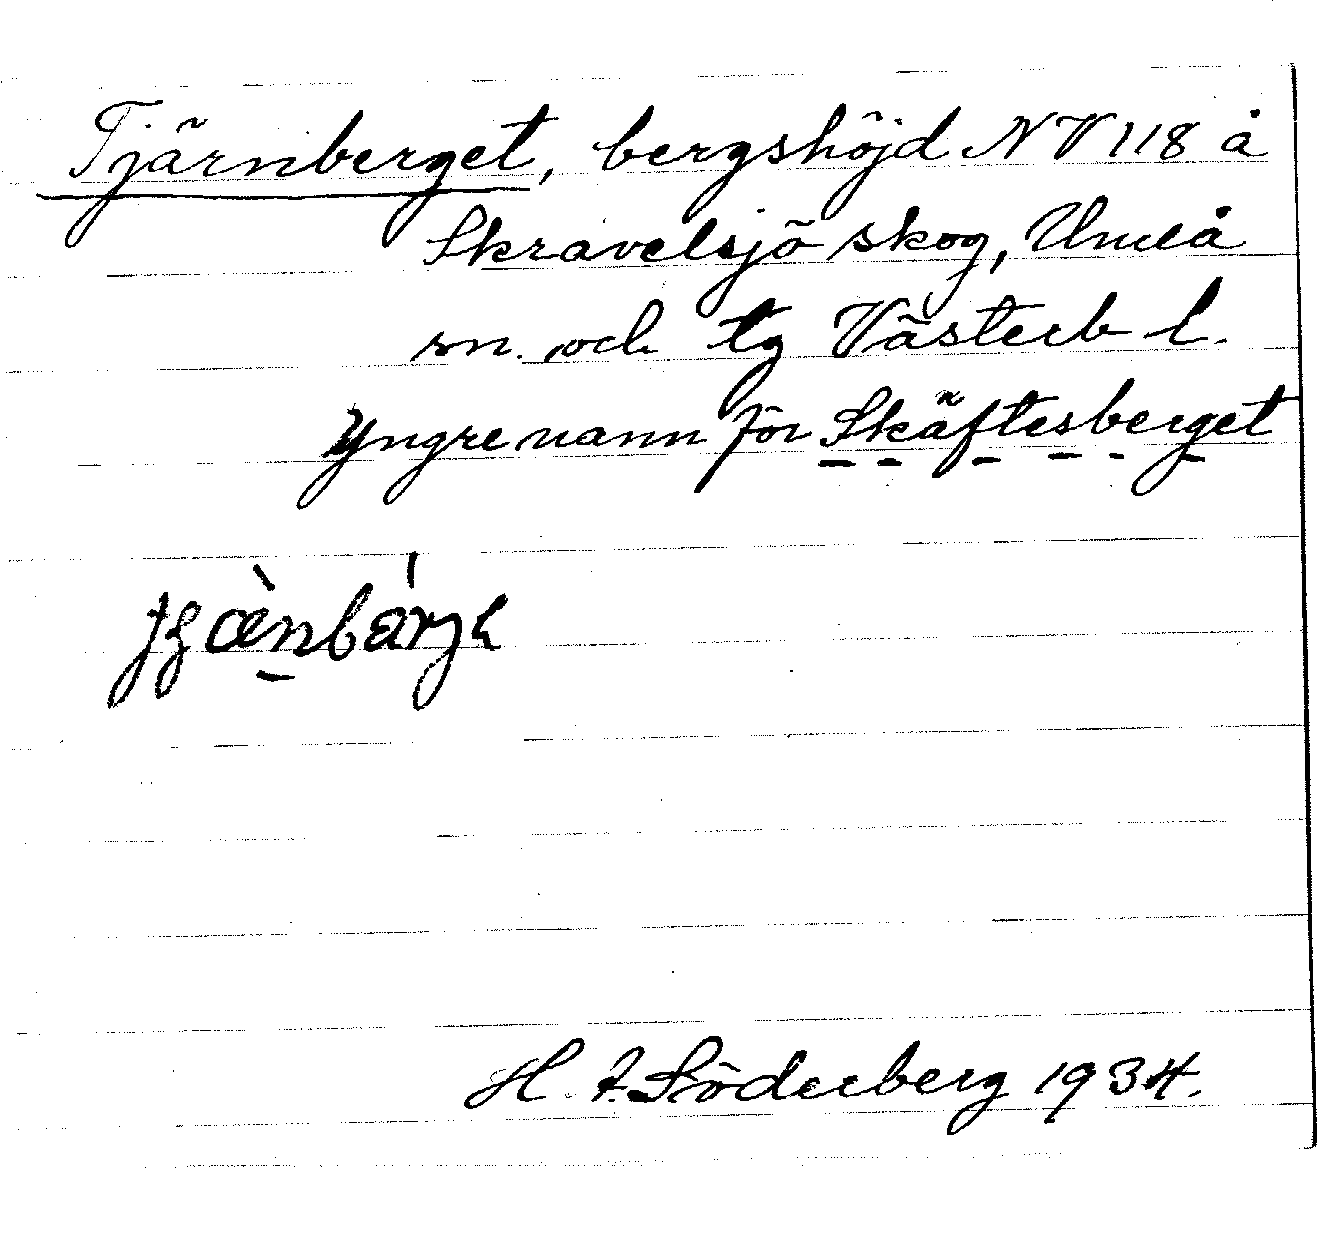 Tjärnberget, bergshöjd NV 118 å
Skravelsjö skog, Umeå
sn. och tg Västerb l.
Yngre namn för Skäftesberget
H. Söderberg 1934.